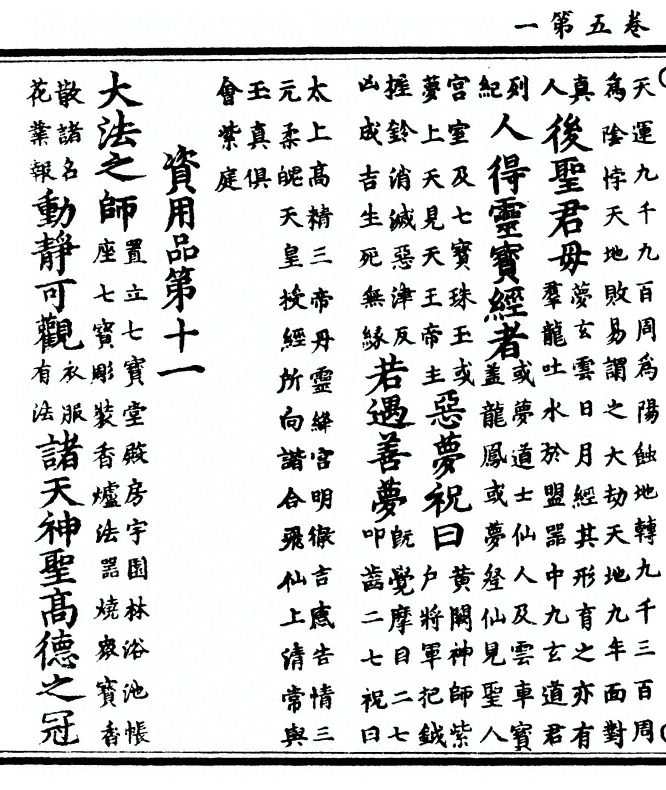 卷五第一
天運九千九百周為陽蝕地轉九千三百周
為陰悖天地敗易謂之大劫天地九年面對
真人後聖君毋夢玄雲日月經其形育之亦有羣龍吐水於盟器中九玄道君
列紀人得靈寶經者或夢道士仙人及雲車寶蓋龍鳳或夢登仙見聖人
宮室及七寶珠玉或夢上天見天王帝主惡夢祝曰黃闕神師紫戶將軍把鉞
握鈴消滅惡津反凶成吉生死無緣若遇善夢既覺摩目二七叩齒二七祝曰
太上高精三帝丹靈絳宮明徹吉感告情三
元柔魄天皇授經所向諧合飛仙上清常與
玉真俱
會紫庭
資用品第十一
大法之師置立七寶堂殿房宇園林浴池帳座七寶彫裝香爐法器燒眾寶香
散諸名花葉報動靜可觀衣服有法諸天神聖高德之冠